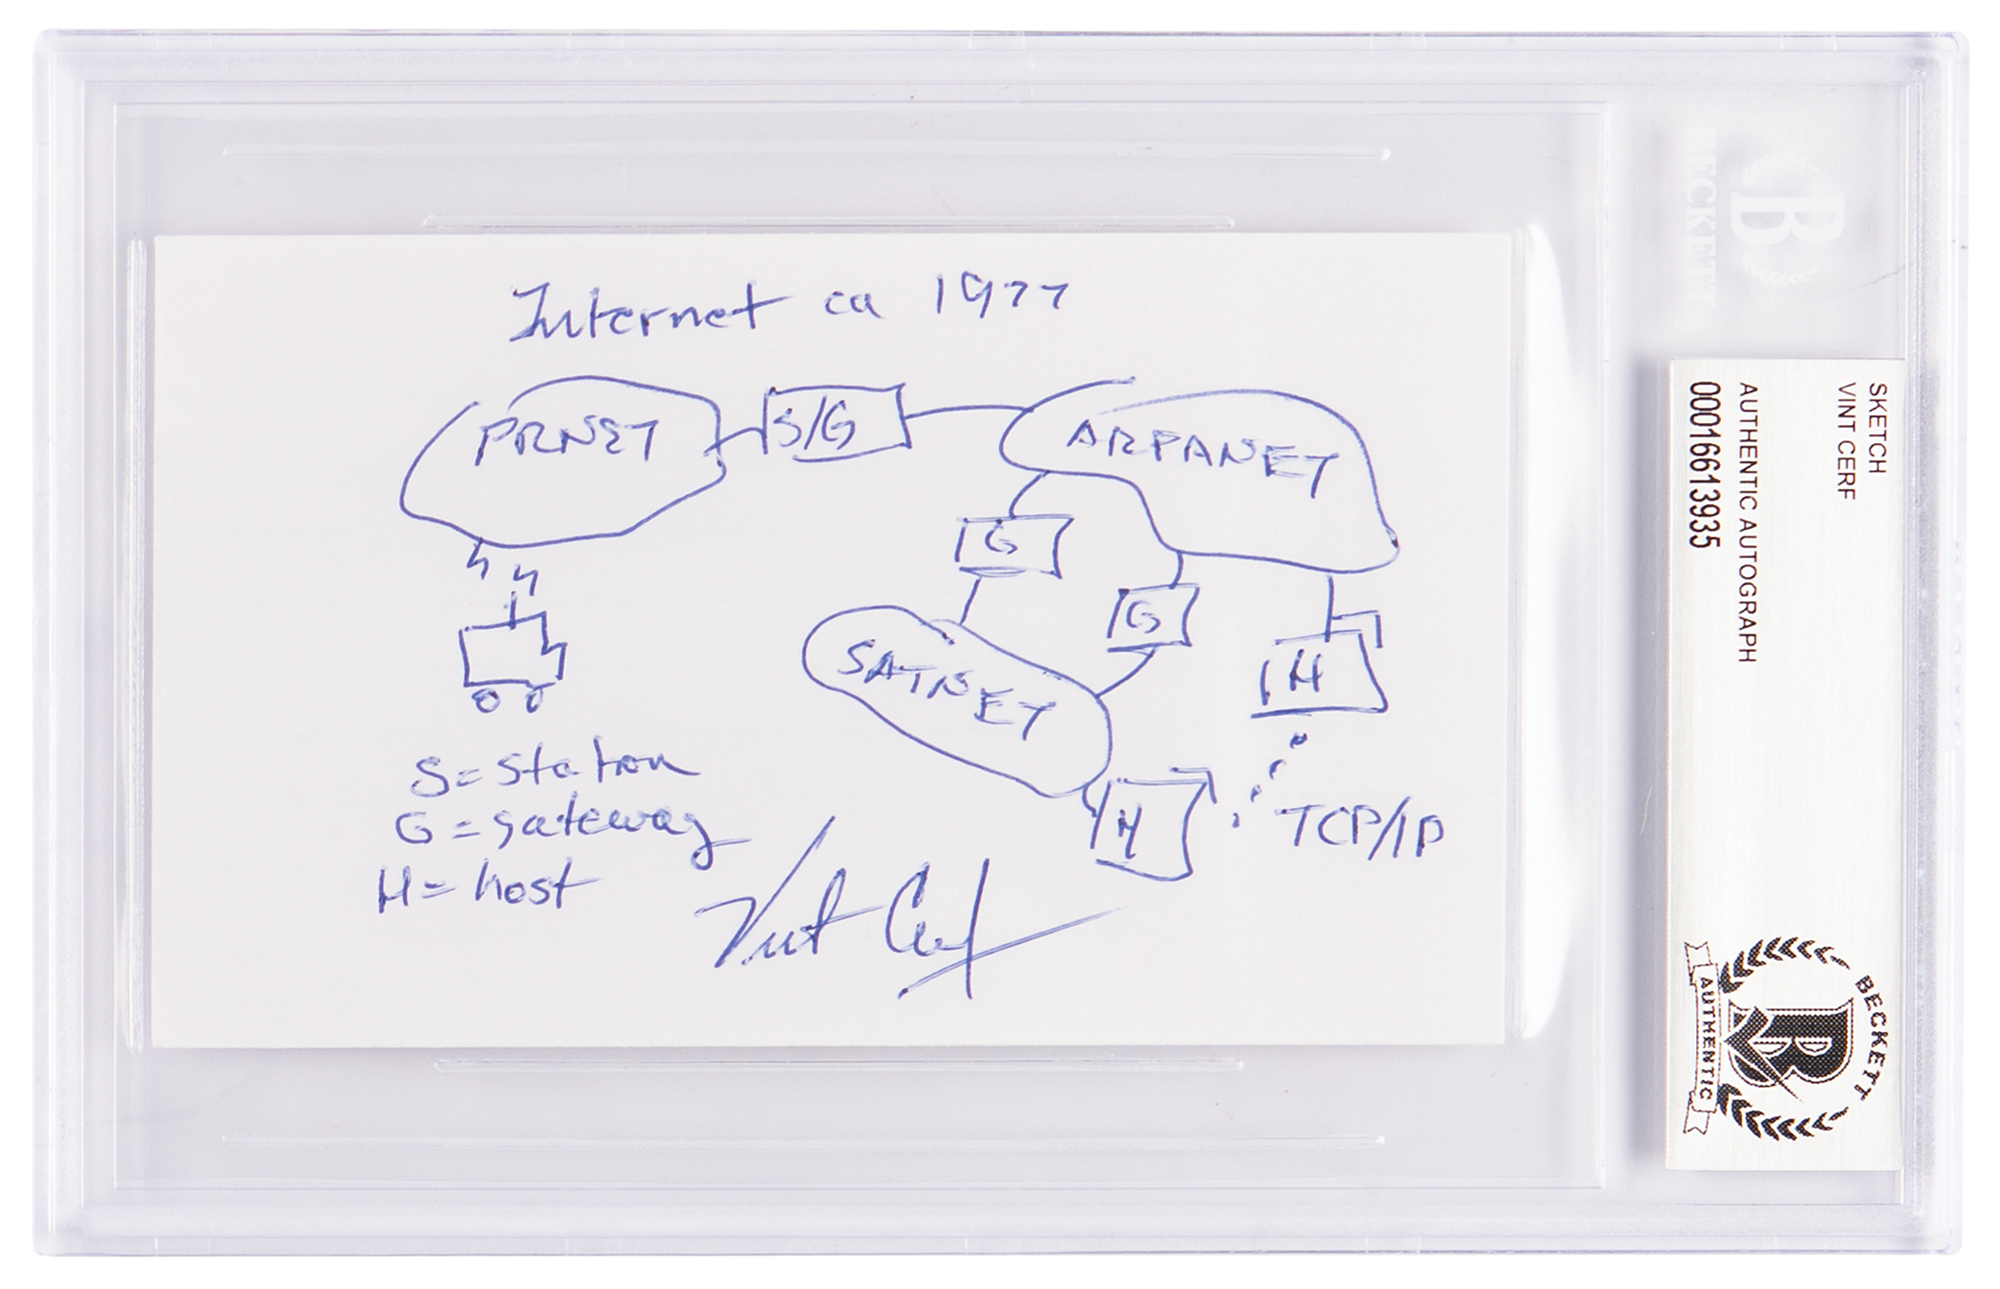 Internet ca 1977
PRNET
S/G
ARPANET
G
G
SATNET
H
H
TCP/IP
S=station
G=gateway
H=host
Vint Cerf
BECKETT
B
SKETCH
VINT CERF
AUTHENTIC AUTOGRAPH
00016613935
BECKETT
B
AUTHENTIC